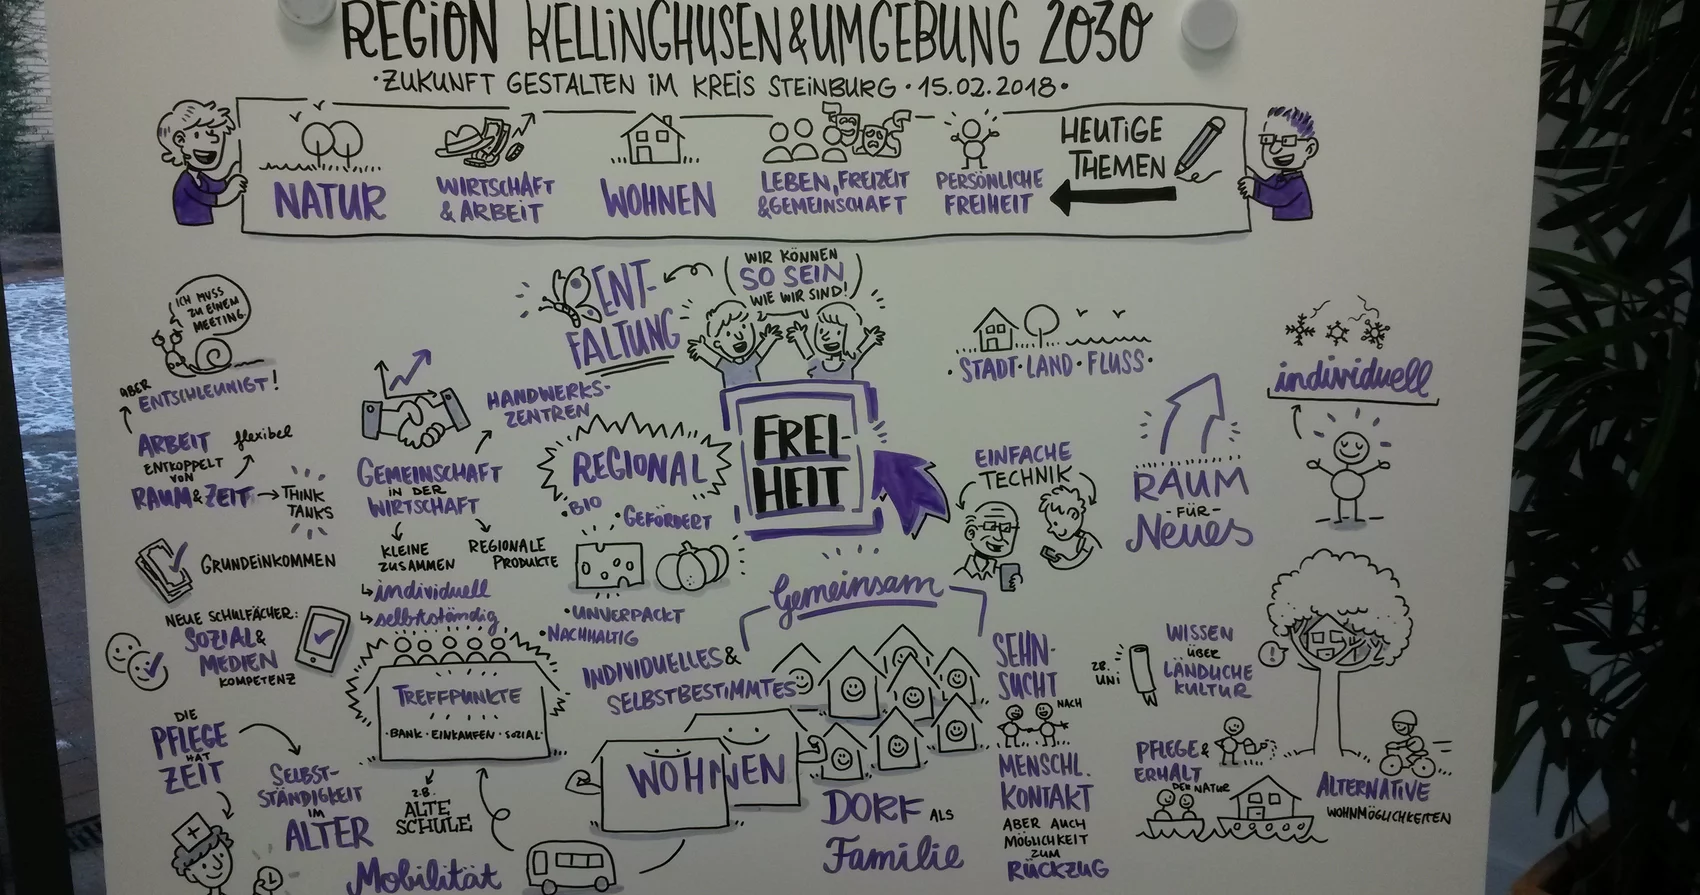 REGION KELLINGHUSEN & UMGEBUNG 2030
·ZUKUNFT GESTALTEN IM KREIS STEINBURG · 15.02.2018·
HEUTIGE
THEMEN
NATUR
WIRTSCHAFT
& ARBEIT
WOHNEN
LEBEN, FREIZEIT
& GEMEINSCHAFT
PERSÖNLICHE
FREIHEIT
ICH MUSS
ZU EINEM
MEETING
ABER
ENTSCHLEUNIGT!
ARBEIT
ENTKOPPELT
VON
RAUM & ZEIT
flexibel
THINK
TANKS
GRUNDEINKOMMEN
NEUE SCHULFÄCHER:
SOZIAL &
MEDIEN
KOMPETENZ
DIE
PFLEGE
HAT
ZEIT
SELBST-
STÄNDIGKEIT
IM
ALTER
HANDWERKS-
ZENTREN
GEMEINSCHAFT
IN DER
WIRTSCHAFT
KLEINE
ZUSAMMEN
individuell
selbstständig
REGIONALE
PRODUKTE
TREFFPUNKTE
·BANK · EINKAUFEN · SOZIAL·
Z.B.
ALTE
SCHULE
Mobilität
ENT-
FALTUNG
WIR KÖNNEN
SO SEIN
WIE WIR SIND!
FREI-
HEIT
REGIONAL
·BIO
·GEFÖRDERT
·UNVERPACKT
·NACHHALTIG
Gemeinsam
INDIVIDUELLES &
SELBSTBESTIMMTES
WOHNEN
DORF ALS
Familie
·STADT·LAND·FLUSS·
EINFACHE
TECHNIK
SEHN-
SUCHT
NACH
MENSCHL.
KONTAKT
ABER AUCH
MÖGLICHKEIT
ZUM
RÜCKZUG
RAUM
-FÜR-
Neues
individuell
Z.B.
UNI
WISSEN
ÜBER
LÄNDLICHE
KULTUR
!
PFLEGE &
ERHALT
DER NATUR
ALTERNATIVE
WOHNMÖGLICHKEITEN